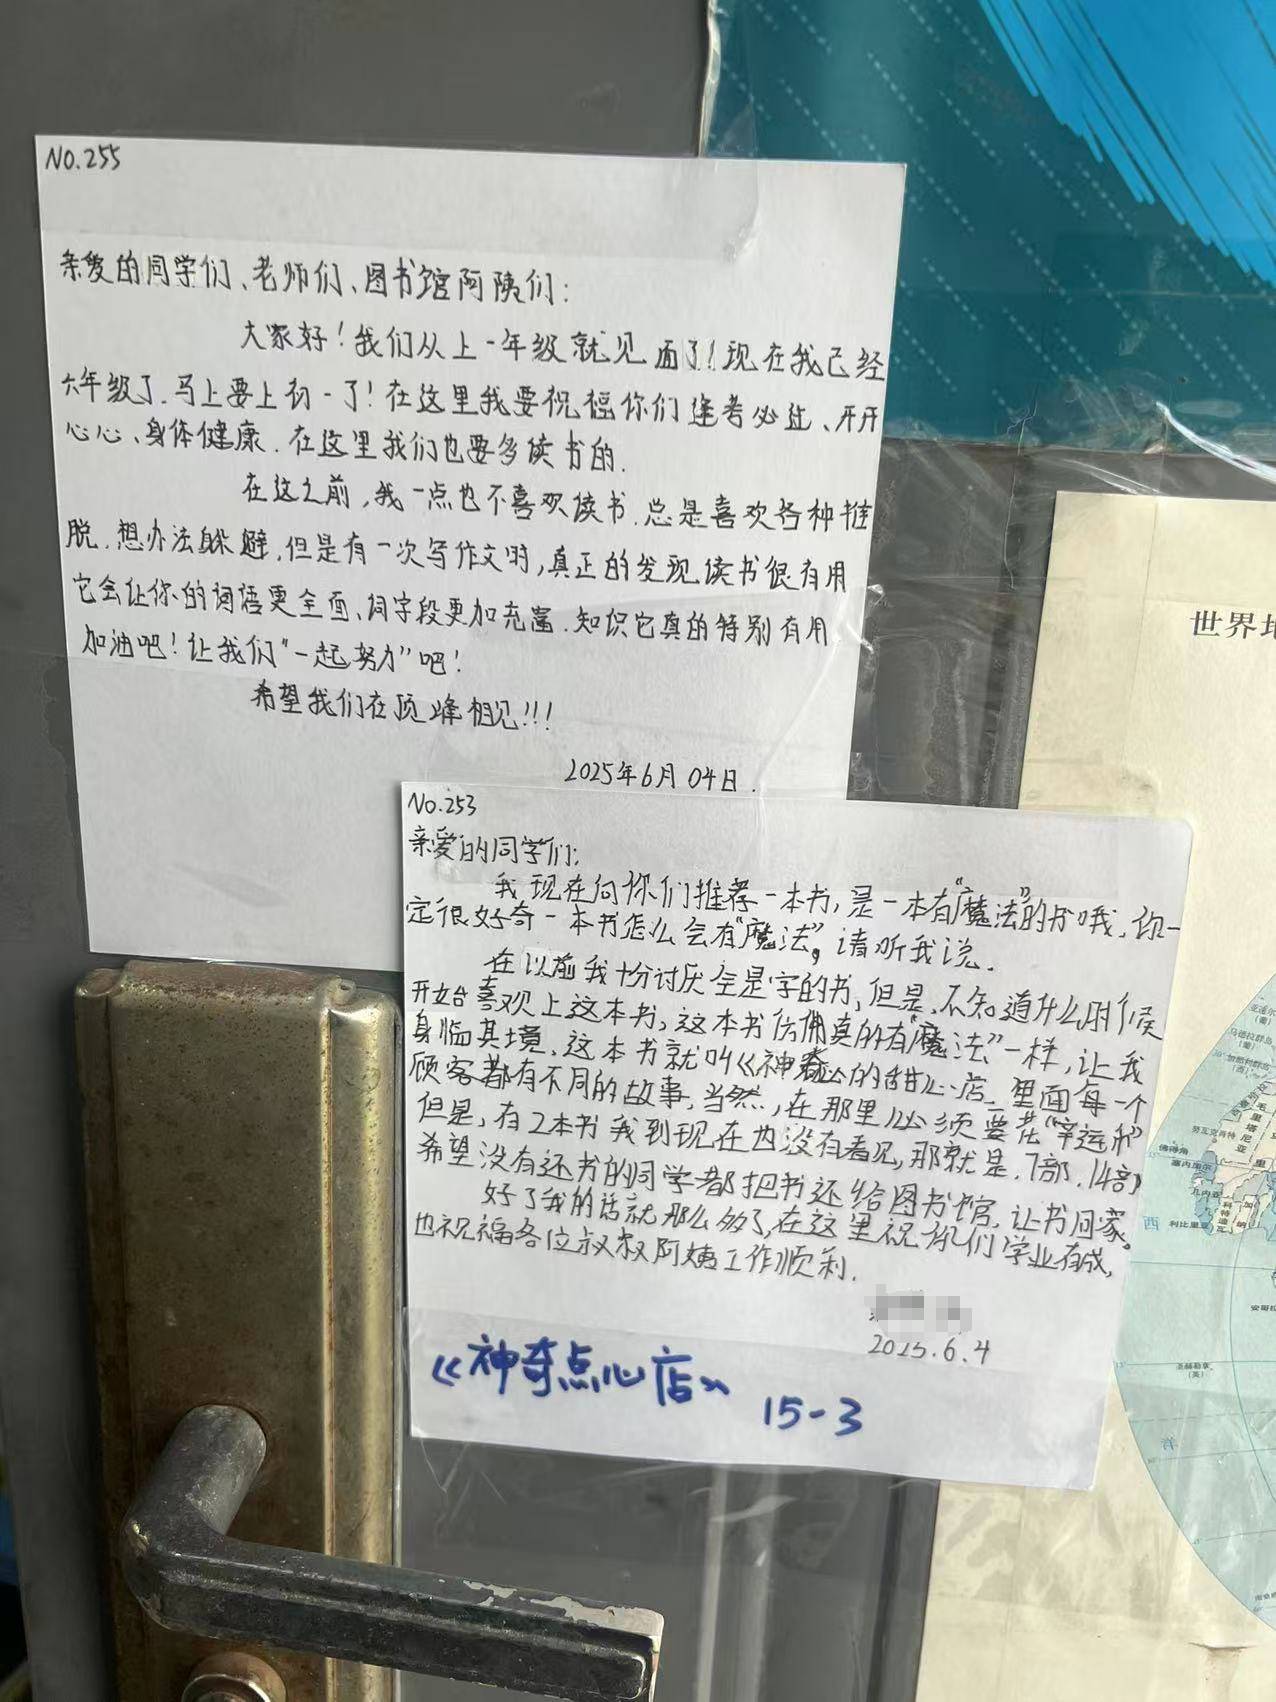 No.255
亲爱的同学们、老师们、图书馆阿姨们：
大家好！我们从上一年级就见面了！现在我已经
六年级了.马上要上初一了！在这里我要祝福你们逢考必过、开开
心心、身体健康.在这里我们也要多读书的.
在这之前,我一点也不喜欢读书.总是喜欢各种推
脱.想办法躲避,但是有一次写作文时,真正的发现读书很有用
它会让你的词语更全面、词字段更加充富.知识它真的特别有用
加油吧！让我们“一起努力”吧！
希望我们在顶峰相见!!!
2025年6月04日.
No.253
亲爱的同学们:
我现在向你们推荐一本书,是一本有“魔法”的书哦,你一
定很好奇一本书怎么会有“魔法”,请听我说.
在以前我十分讨厌全是字的书,但是,不知道什么时候
开始喜欢上这本书,这本书仿佛真的有“魔法”一样,让我
身临其境,这本书就叫《神的甜心店.里面每一个
顾客都有不同的故事,当然,在那里必须要花“幸运币”
但是,有2本书我到现在也没有看见,那就是.7部.14部
希望没有还书的同学都把书还给图书馆,让书回家。
好了我的话就那么多了,在这里祝你们学业有成,
也祝福各位叔叔阿姨工作顺利.
2025.6.4
《神奇点心店》
15-3
世界地
西
亚速尔
马德拉群岛
加那利群岛
努瓦克肖特
佛得角
塞内加尔
几内亚
利比里亚
毛里塔尼亚
圣赫勒拿
(英)